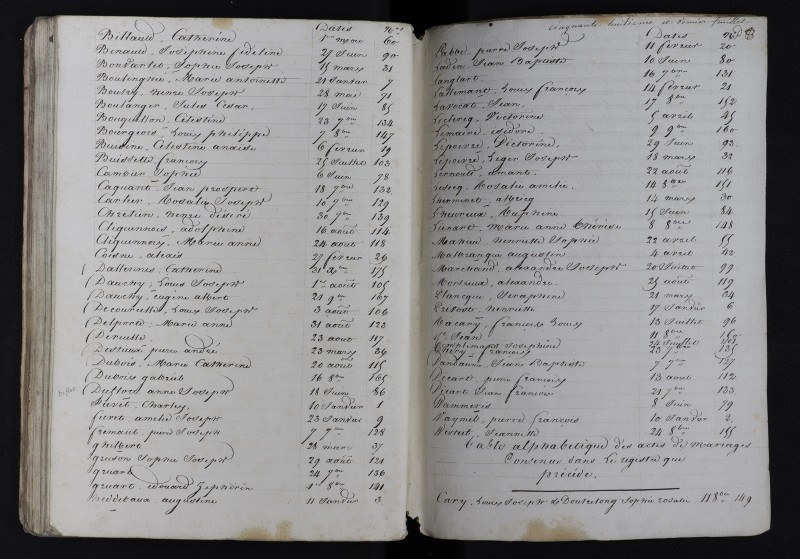 Dates
Billaud, Catherine 1er mars 60
Binaud, Josephine fideline 29 Juin 90
Bondarlet, Sophie Joseph 15 mars 31
Boulengnie, Marie antoinette 21 Janvier 7
Boulry, henri Joseph 28 mai 71
Boulanger, Jules Cesar 17 Juin 85
Bouquillon, Celestine 23 9bre 134
Bourgeois, Louis philippe 7 8bre 147
Buisine, Celestine anaise 6 fevrier 19
Buissette, francois 25 Juillet 103
Cambier, Sophie 6 Juin 78
Caquant, Jean prospere 18 7bre 132
Cartier, Rosalie Joseph 10 7bre 129
Chretien, henri desire 30 7bre 139
Cliquennois, adolphine 16 août 114
Cliquennois, Marie anne 24 août 118
Coisne, alexis 27 fevrier 26
Dattennes, Catherine 31 Xbre 175
Dauchy, Louis Joseph 1er août 105
Dauchy, eugene albert 21 9bre 167
Decourcelle, Louis Joseph 3 août 106
Delporte, Marie anne 31 août 123
Deruelle, 23 août 117
Destieux, pierre andré 23 mars 36
Dubois, Marie Catherine 20 août 115
Dubois, gabriel 16 8bre 165
Duflos, anne Joseph 18 Juin 86
Duvet, Charles 10 Janvier 1
fievet, amelie Joseph 23 Janvier 9
fremaut, pierre Joseph 7 7bre 128
ghilbert 28 mars 37
gruson, Sophie Joseph 29 août 121
gruart 24 7bre 136
gruart, edouard Zephirin 1er 8bre 141
heddebaux, augustine 11 Janvier 3
cinquante huitieme et dernier feuillet
Dates
Labbe, pierre Joseph 11 fevrier 20
Ladin, Jean Baptiste 10 Juin 80
Langlart 16 7bre 131
Lattimant, Louis francois 14 fevrier 21
Lavocat, Jean 17 8bre 152
Leclercq, Victorine 5 avril 45
Lemaire, isidore 9 9bre 160
Lepoivre, Victorine 29 Juin 92
Lepoivre, Leger Joseph 18 mars 32
Lernould, amant 22 août 116
Lesecq, Rosalie amelie 14 8bre 151
Lherminez, alberic 14 mars 30
Lheureux, Delphine 15 Juin 84
Lienart, Marie anne thérèse 8 8bre 148
Mahieu, henriette Sophie 22 avril 55
Malbranque, augustin 4 avril 42
Marchand, alexandre Joseph 20 Juillet 99
Morivaux, alexandre 25 août 119
Plancque, Seraphine 21 mars 34
Prevost, henriette 17 Janvier 6
Racary, francois Louis 13 Juillet 96
Jean 11 8bre
Josephine 24 Juillet
Thery, francois 23 7bre 135
Vandamme, Jean Baptiste 7 7bre 127
Vicart, pierre francois 13 août 112
Vicart, Jean francois 21 7bre 133
Wamneris 8 Juin 79
Waymel, pierre francois 10 Janvier 2
Westel, Jeannette 24 8bre 155
Table alphabetique des actes de Mariages
Contenue dans le registre qui
précède.
Cary, Louis Joseph & Doutrelong Sophie rosalie 11 8bre 149